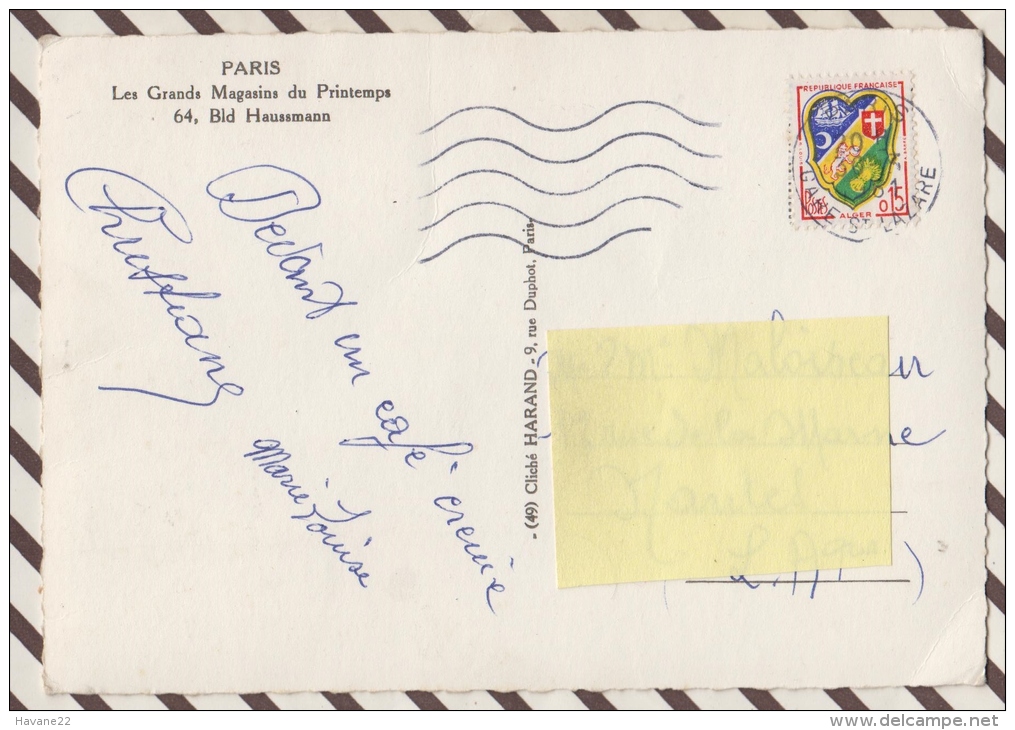 PARIS
Les Grands Magasins du Printemps
64, Bld Haussmann
REPUBLIQUE FRANÇAISE
POSTES
0,15
ALGER
GARE St LAZARE
Devant un café crème
Christiane
Marie Louise
- (49) Cliché HARAND - 9, rue Duphot, Paris-
rue de la Marne
Havane22
delcampe.net